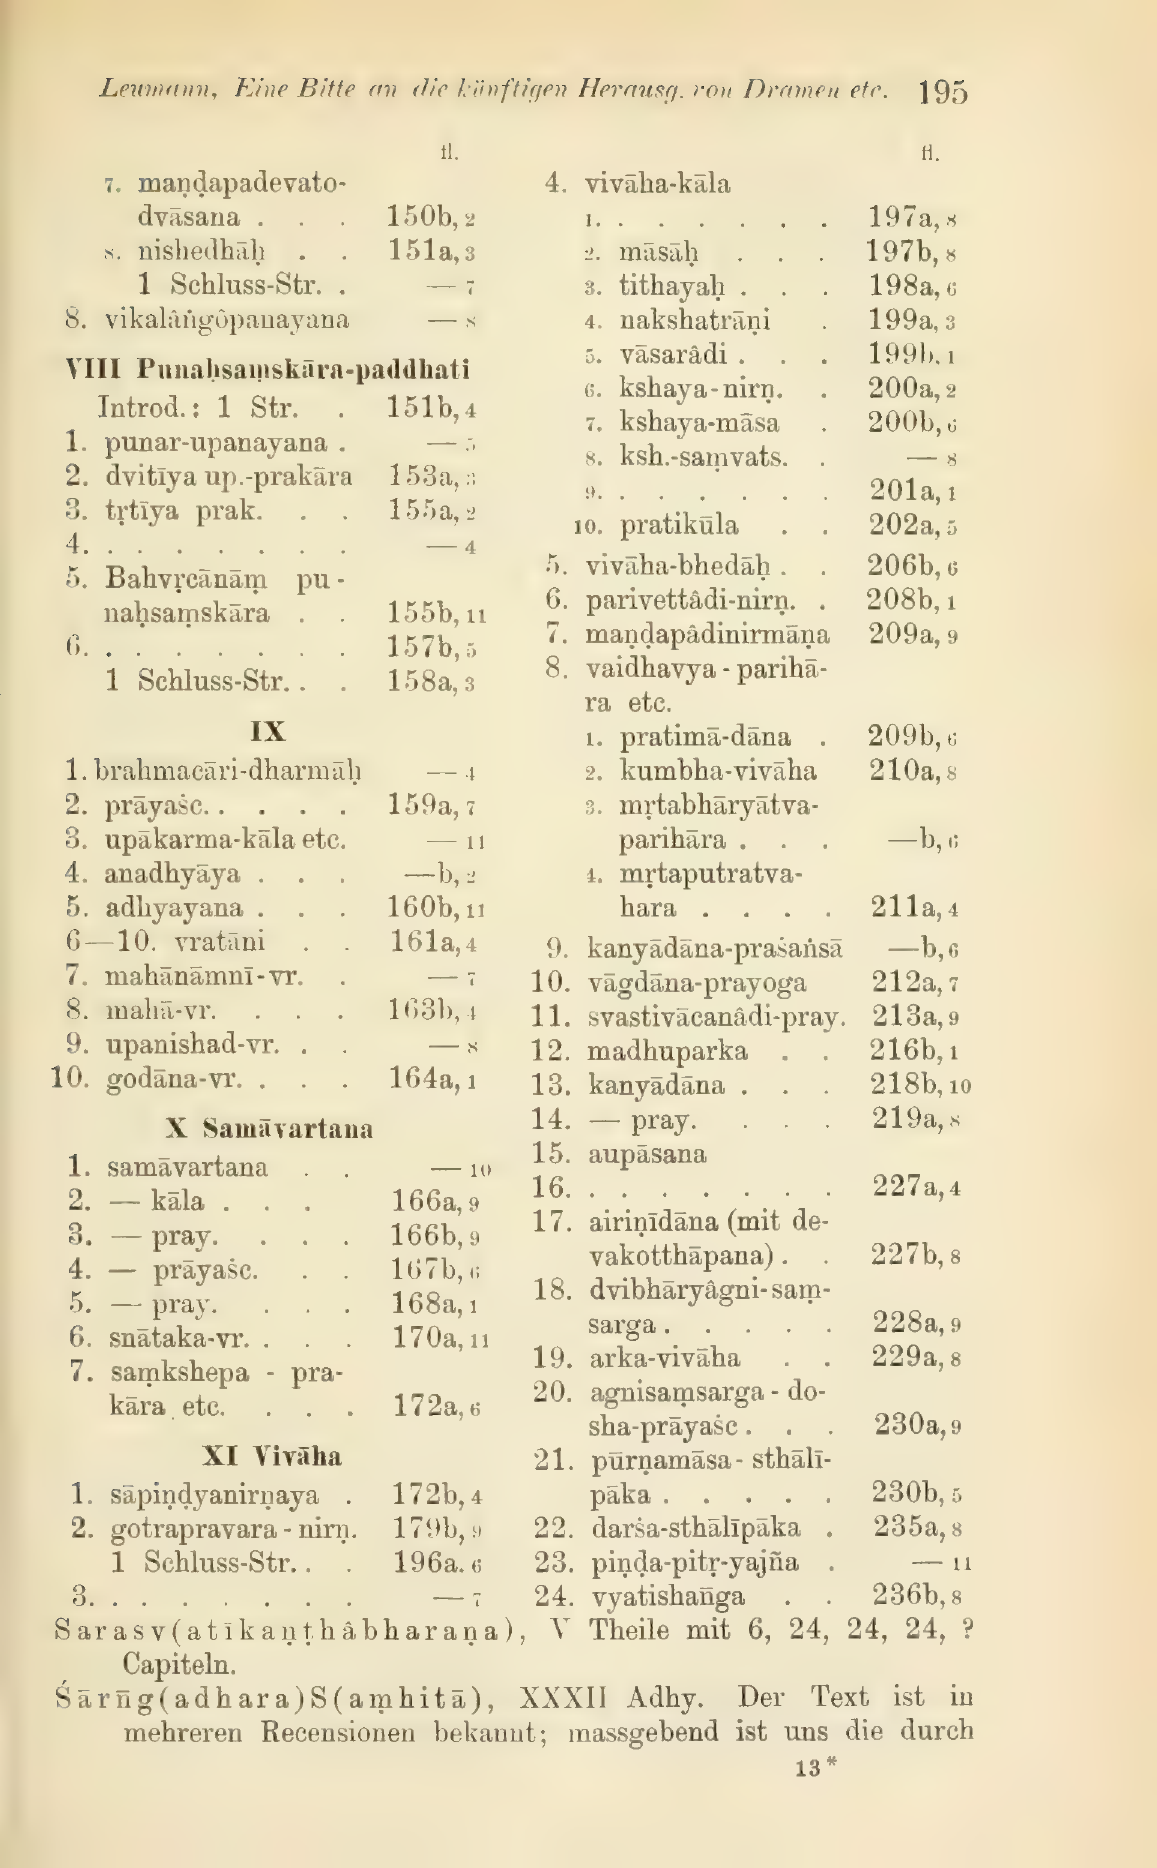 Leumann, Eine Bitte an die künftigen Herausg. von Dramen etc. 195
fl.
7. maṇḍapadevato-
dvāsana . . . 150b, 2
8. nishedhāḥ . . 151a, 3
1 Schluss-Str. . — 7
8. vikalâṅgôpanayana — 8
VIII Punaḥsaṃskāra-paddhati
Introd.: 1 Str. . 151b, 4
1. punar-upanayana . — 5
2. dvitīya up.-prakāra 153a, 3
3. tṛtīya prak. . . 155a, 2
4. . . . . . . . . — 4
5. Bahvṛcānāṃ pu-
naḥsaṃskāra . . 155b, 11
6. . . . . . . . . 157b, 5
1 Schluss-Str. . . 158a, 3
IX
1. brahmacāri-dharmāḥ — 4
2. prāyaśc. . . . . 159a, 7
3. upākarma-kāla etc. — 11
4. anadhyāya . . . —b, 2
5. adhyayana . . . 160b, 11
6—10. vratāni . . 161a, 4
7. mahānāmnī-vr. . — 7
8. mahā-vr. . . . 163b, 4
9. upanishad-vr. . . — 8
10. godāna-vr. . . . 164a, 1
X Samāvartana
1. samāvartana . . — 10
2. — kāla . . . 166a, 9
3. — pray. . . . 166b, 9
4. — prāyaśc. . . 167b, 6
5. — pray. . . . 168a, 1
6. snātaka-vr. . . . 170a, 11
7. saṃkshepa - pra-
kāra etc. . . . 172a, 6
XI Vivāha
1. sāpiṇḍyanirṇaya . 172b, 4
2. gotrapravara - nirṇ. 179b, 9
1 Schluss-Str. . . 196a. 6
3. . . . . . . . . — 7
fl.
4. vivāha-kāla
1. . . . . . . . 197a, 8
2. māsāḥ . . . 197b, 8
3. tithayaḥ . . . 198a, 6
4. nakshatrāṇi . 199a, 3
5. vāsarâdi . . . 199b, 1
6. kshaya-nirṇ. . 200a, 2
7. kshaya-māsa . 200b, 6
8. ksh.-saṃvats. . — 8
9. . . . . . . . 201a, 1
10. pratikūla . . 202a, 5
5. vivāha-bhedāḥ . . 206b, 6
6. parivettâdi-nirṇ. . 208b, 1
7. maṇḍapâdinirmāṇa 209a, 9
8. vaidhavya - parihā-
ra etc.
1. pratimā-dāna . 209b, 6
2. kumbha-vivāha 210a, 8
3. mṛtabhāryātva-
parihāra . . . —b, 6
4. mṛtaputratva-
hara . . . . 211a, 4
9. kanyādāna-praśaṅsā —b, 6
10. vāgdāna-prayoga 212a, 7
11. svastivācanâdi-pray. 213a, 9
12. madhuparka . . 216b, 1
13. kanyādāna . . . 218b, 10
14. — pray. . . . 219a, 8
15. aupāsana
16. . . . . . . . . 227a, 4
17. airiṇīdāna (mit de-
vakotthāpana) . . 227b, 8
18. dvibhāryâgni-saṃ-
sarga . . . . . 228a, 9
19. arka-vivāha . . 229a, 8
20. agnisaṃsarga - do-
sha-prāyaśc . . . 230a, 9
21. pūrṇamāsa - sthālī-
pāka . . . . . 230b, 5
22. darśa-sthālīpāka . 235a, 8
23. piṇḍa-pitṛ-yajña . — 11
24. vyatishaṅga . . 236b, 8
Sarasv(atīkaṇṭhâbharaṇa), V Theile mit 6, 24, 24, 24, ?
Capiteln.
Śārṅg(adhara)S(aṃhitā), XXXII Adhy. Der Text ist in
mehreren Recensionen bekannt; massgebend ist uns die durch
13*